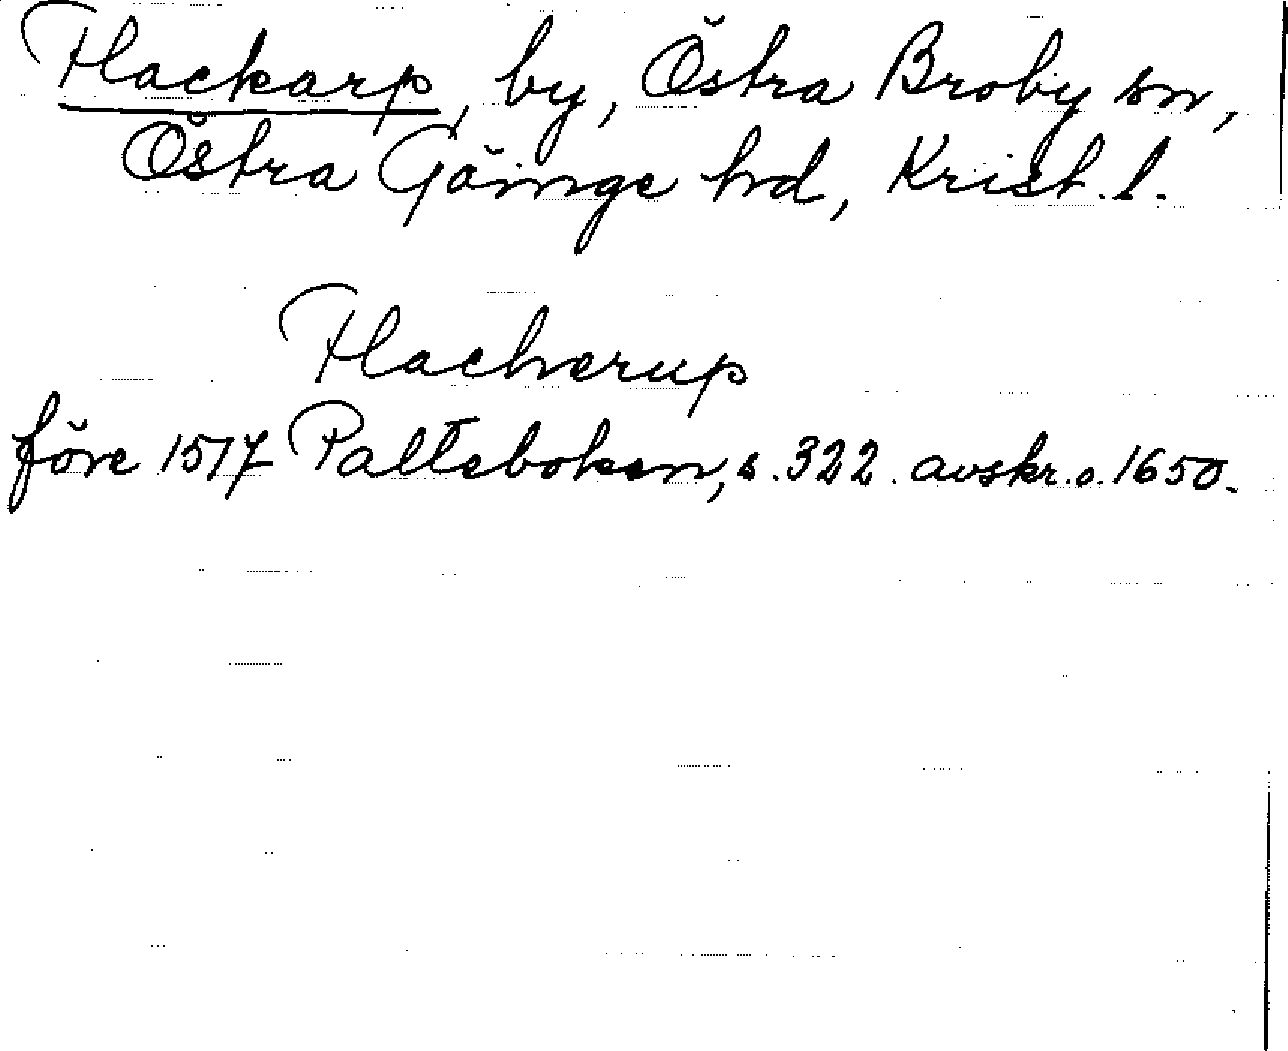 Flackarp, by, Östra Broby sn,
Östra Göinge hd, Krist. l.
Flacherup
före 1517 Palteboken, s. 322. avskr. o. 1650.